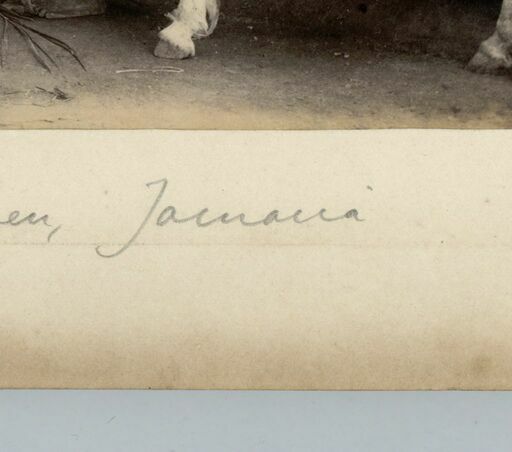 en, Jamaica